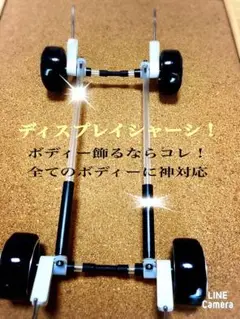 ディスプレイシャーシ！
ボディー飾るならコレ！
全てのボディーに神対応
LINE
Camera